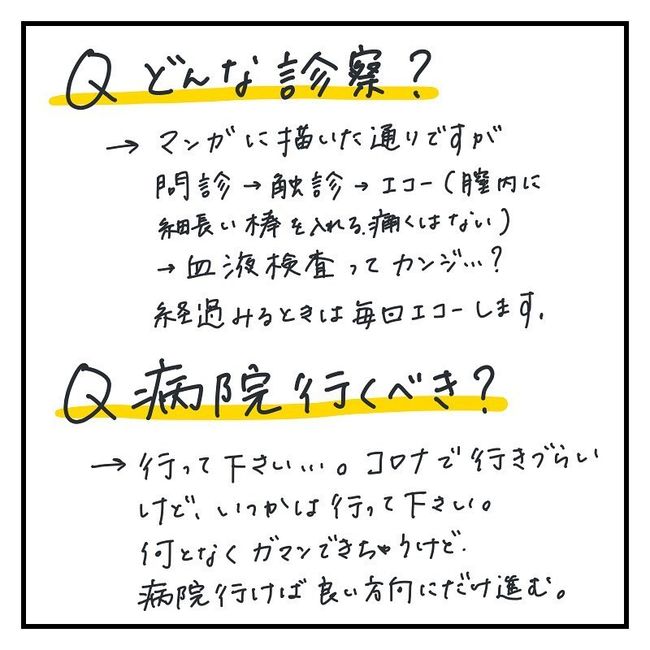 Q どんな診察?
→ マンガに描いた通りですが
問診→触診→エコー(膣内に
細長い棒を入れる.痛くはない)
→血液検査ってカンジ…?
経過みるときは毎回エコーします.
Q 病院行くべき?
→ 行って下さい…。コロナで行きづらい
けど、いつかは行って下さい。
何となくガマンできちゃうけど.
病院行けば良い方向にだけ進む。